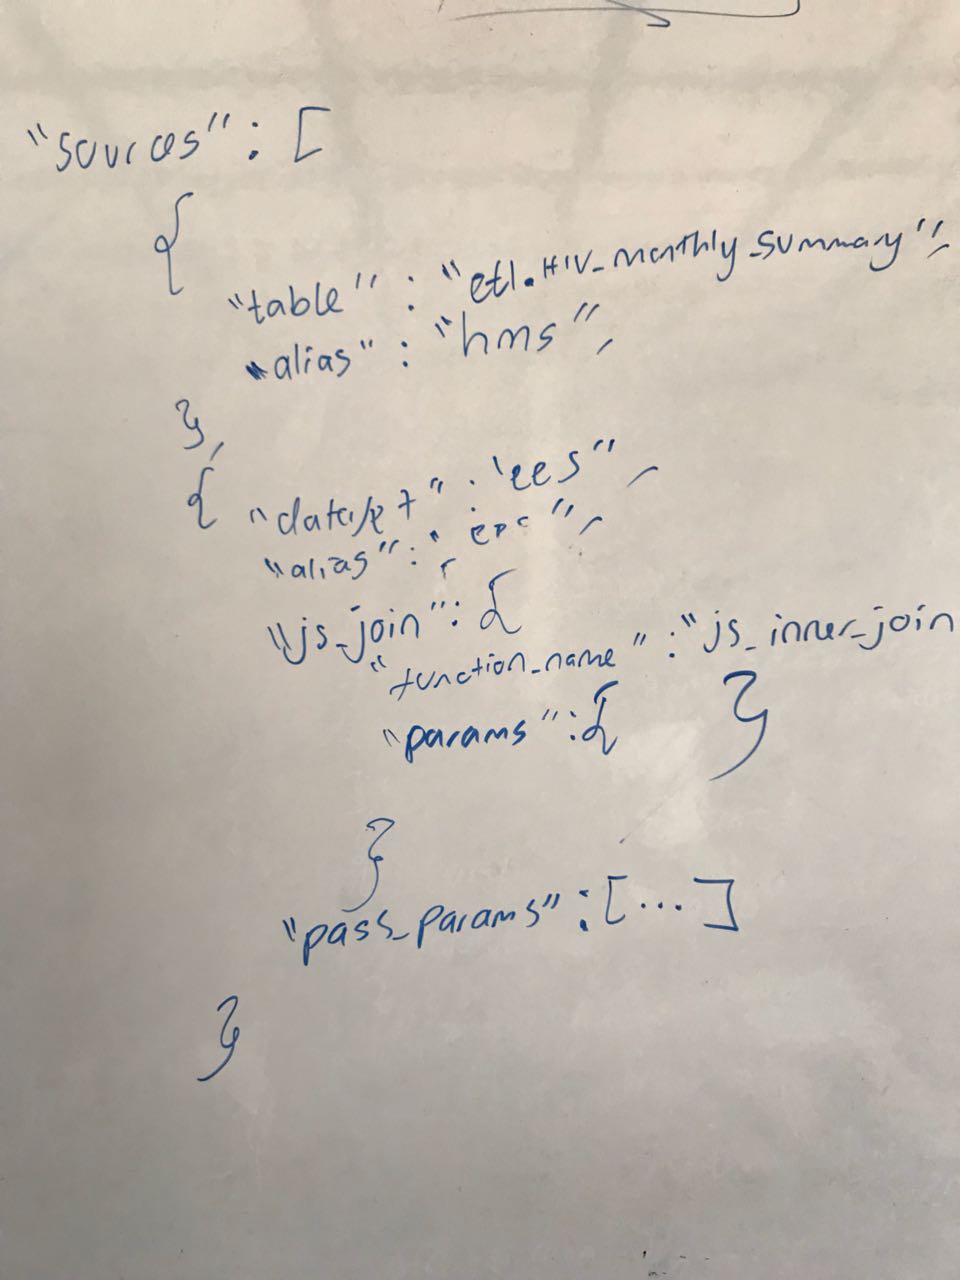 "sources": [
{
"table": "etl.HIV_monthly_summary",
"alias": "hms",
},
{ "dataset": 'ees",
"alias":
"js_join": {
"function_name": "js_inner_join
"params": { }
}
"pass_params": [...]
}